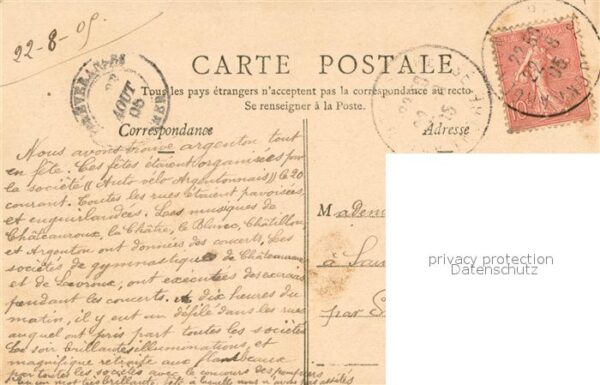 22-8-05
CARTE POSTALE
Tous les pays étrangers n'acceptent pas la correspondance au recto
Se renseigner à la Poste.
Correspondance
Adresse
AOUT
05
Nous avons trouvé argenton tout
en fête. Ces fêtes étaient organisées par
la société (( Auto vélo Argentonnais)) le 20
courant. Toutes les rues étaient pavoisées
et enguirlandées. Les musiques de
Châteauroux, la Châtre, le Blanc, Châtillon
et Argenton ont données des concerts. Les
sociétés de gymnastiques de Châteauroux
et de Levroux, ont exécutées des
pendant les concerts. A dix heures du
matin, il y eut un défilé dans les rues
auquel ont pris part toutes les sociétés
Le soir brillantes illuminations, et
magnifique retraite aux flambeaux
par toutes les sociétés avec le concours des pompiers
En un mot très brillante fête à laquelle nous avons assistés
Madem
à
par
privacy protection
Datenschutz